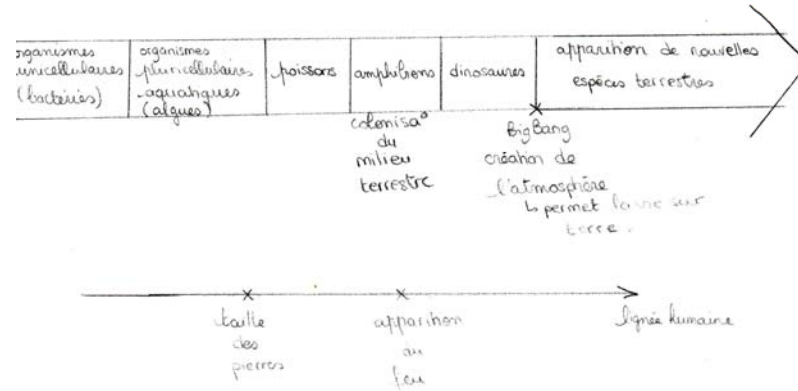 organismes
unicellulaires
(bactéries)
organismes
pluricellulaires
aquatiques
(algues)
poissons
amphibiens
dinosaures
apparition de nouvelles
espèces terrestres
colonisa°
du
milieu
terrestre
Big Bang
création de
l'atmosphère
↳ permet la vie sur
terre.
taille
des
pierres
apparition
du
feu
lignée humaine